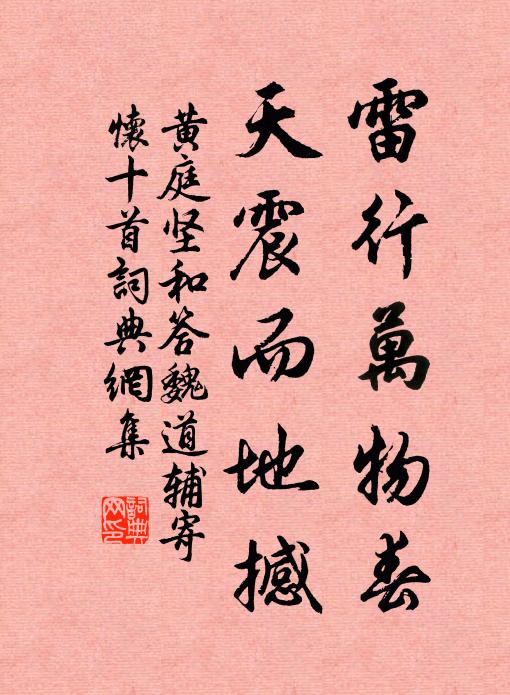 雷行萬物春
天震而地撼
黄庭坚和答魏道辅寄
懷十首詞典網集
詞典
网印